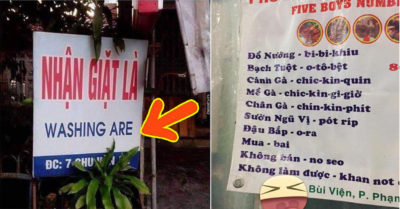 NHẬN GIẶT LÀ
WASHING ARE
ĐC: 7 CHU
FIVE BOYS NUMB
Đồ Nướng - bi-bi-khiu
Bạch Tuột - o-tô-bêt
Cánh Gà - chic-kin-quin
Mề Gà - chic-kin-gi-giờ
Chân Gà - chin-kin-phit
Sườn Ngũ Vị - pót rip
Đậu Bắp - o-ra
Mua - bai
Không bán - no seo
Không làm được - khan not
Bùi Viện, P. Phạm